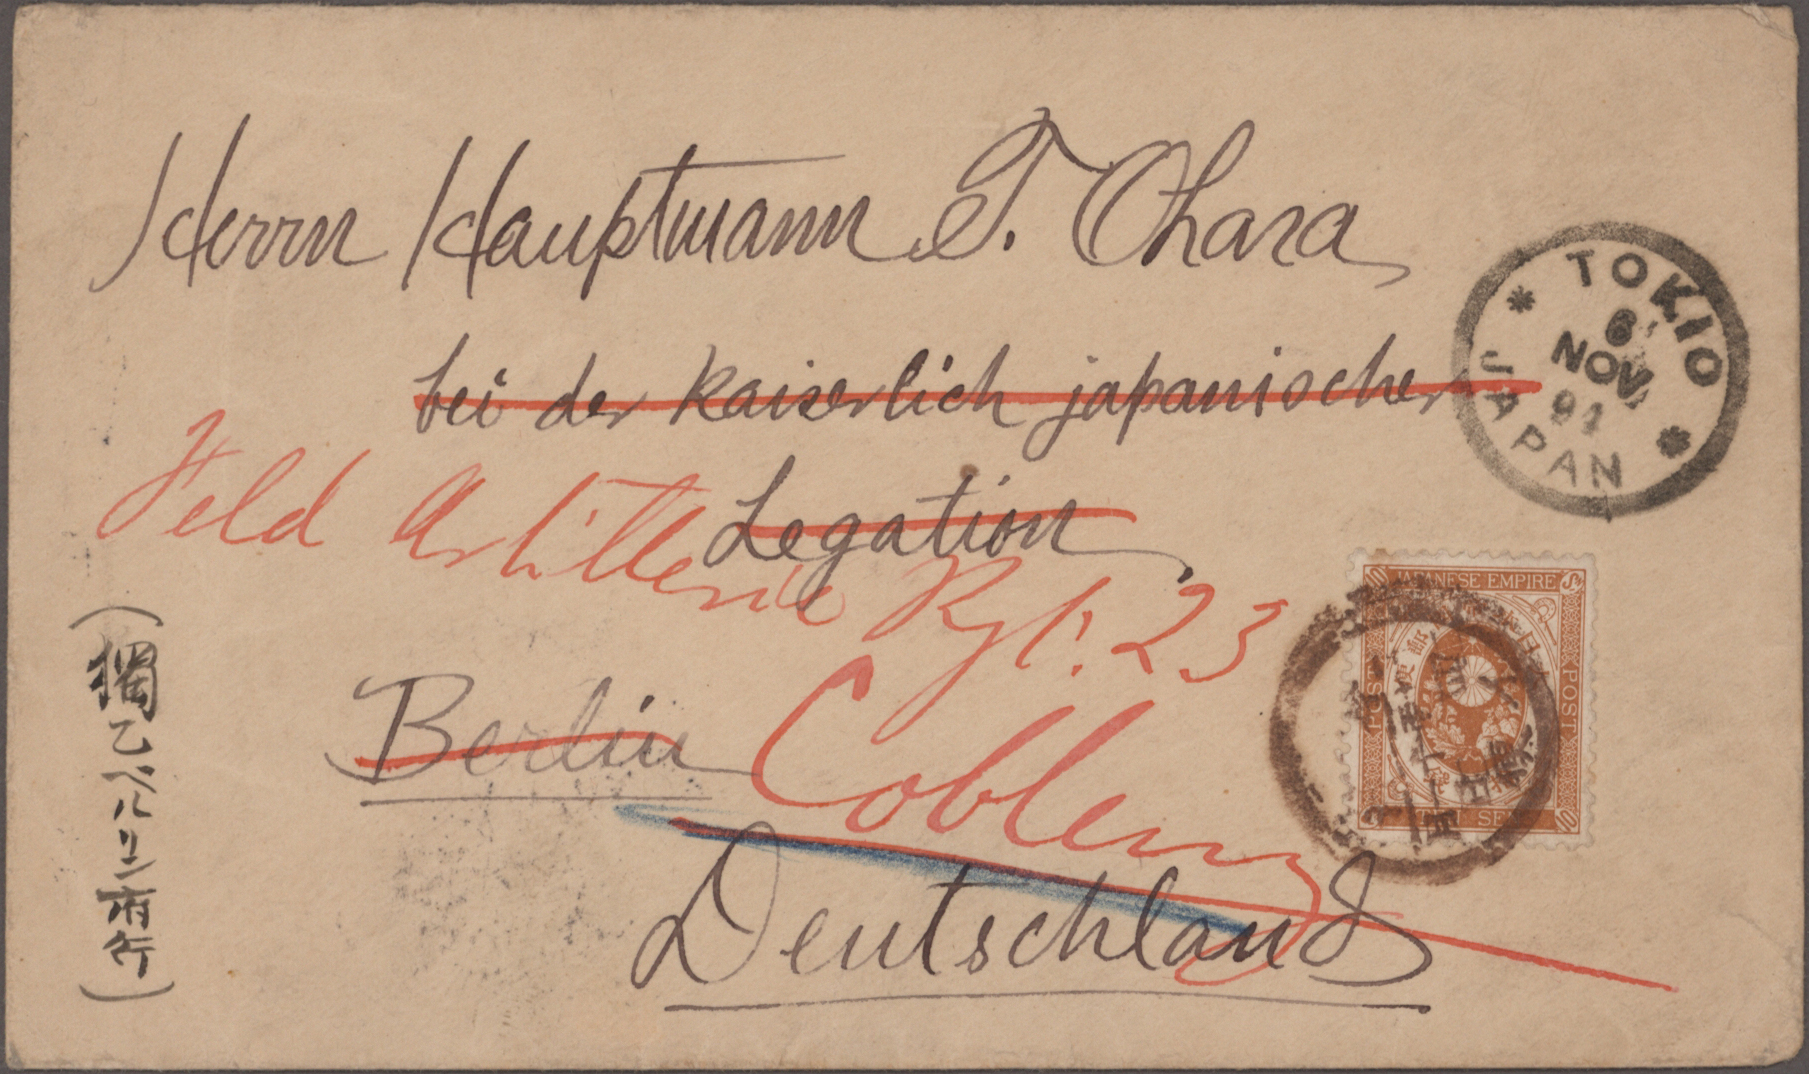 Herrn Hauptmann T. Ohara
bei der kaiserlich japanischen
Legation,
Feld Artillerie Rgt. 23
Berlin
Coblenz
Deutschland
(獨乙ベルリン府行)
TOKIO
6
NOV
91
JAPAN
10 JAPANESE EMPIRE Sn
POST
POST
SEN 10